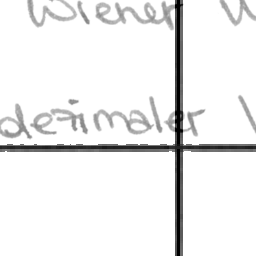 Wiener
dezimaler